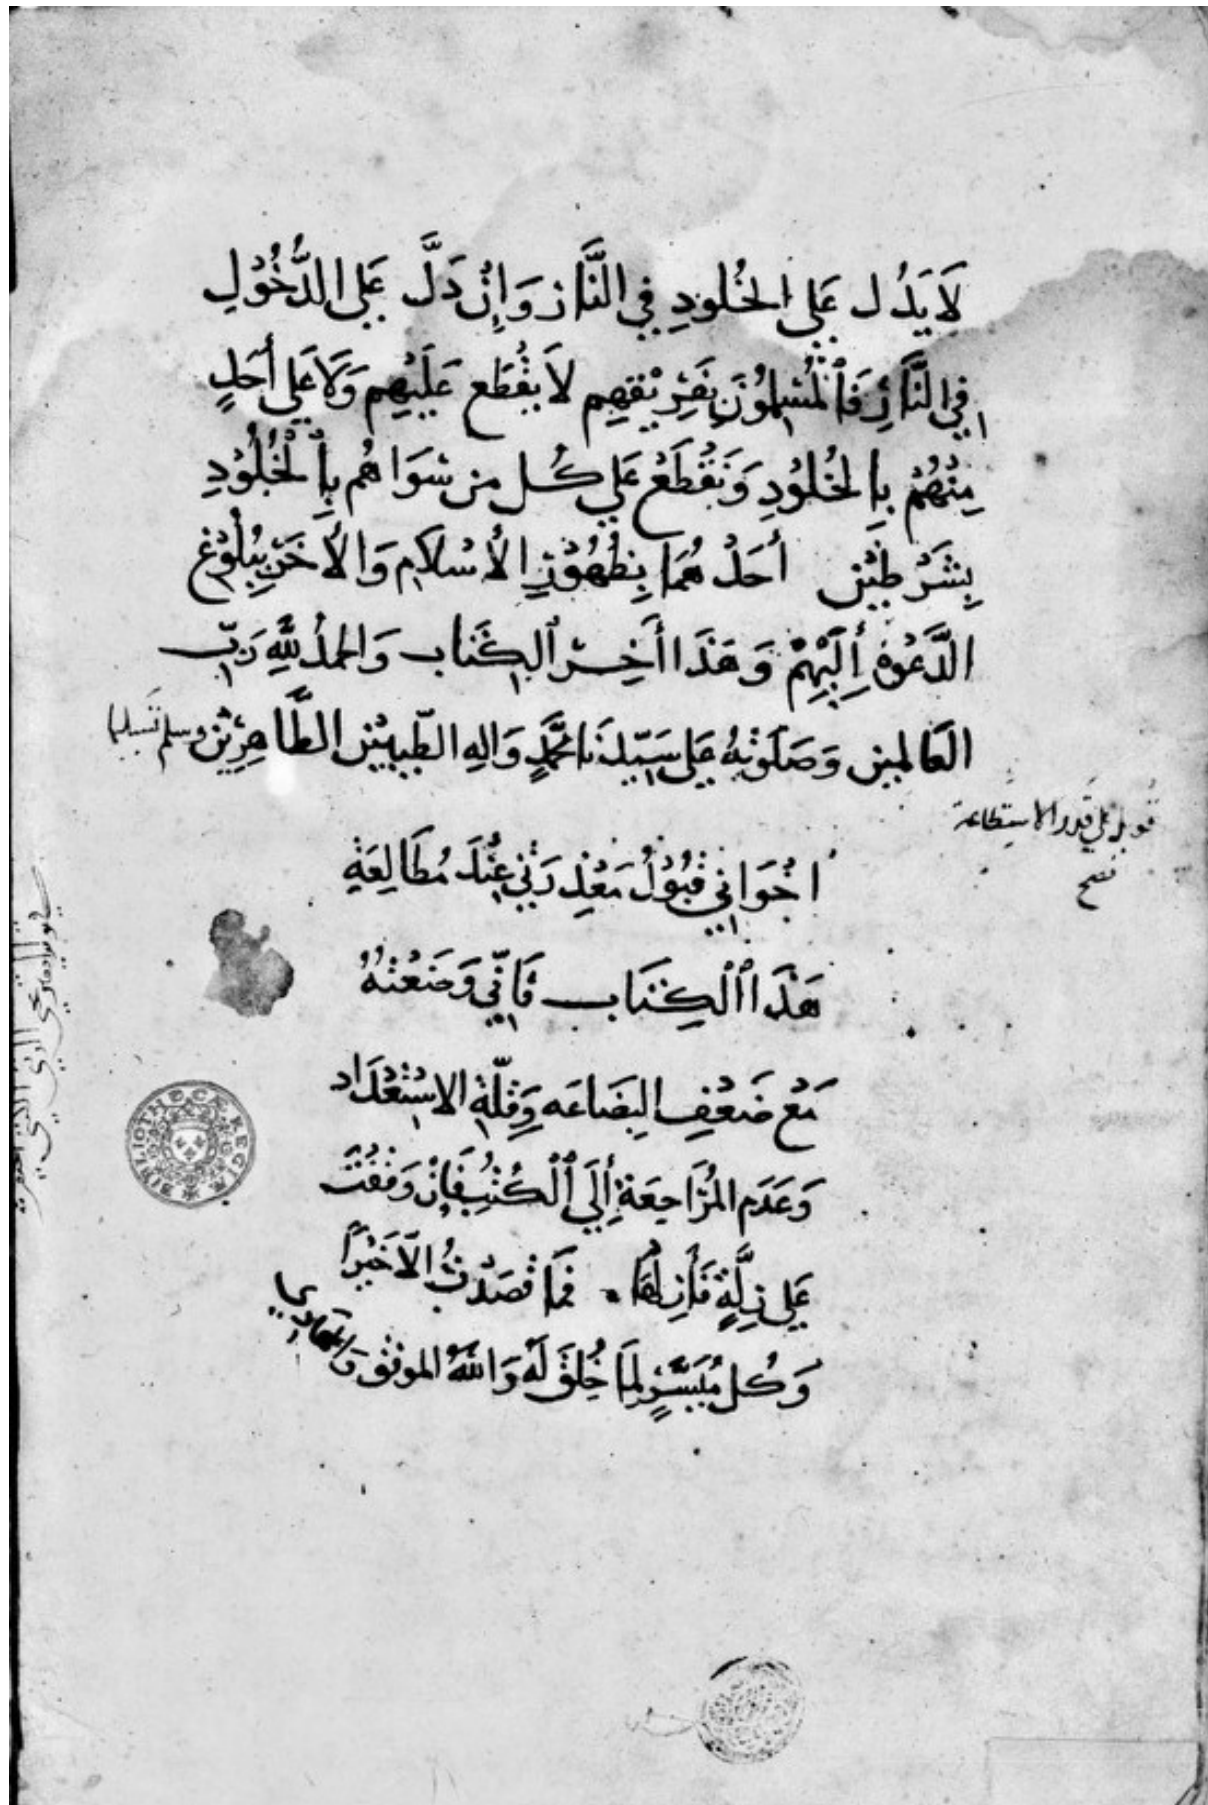 لَا يَدُل عَلي الخُلودِ فِي النَّار وَإِنْ دَلَّ عَلي الدُّخُوْلِ
فِي النَّارِ فَالْمُسْلِمُوْنَ بِفَرِيْقَهِم لاَ يقْطَع عَلَيْهِم وَلاَ عَلي أحَدٍ
مِنْهُمْ بِالخُلُوْدِ وَنَقْطَعُ عَلي كُل من سَوَاهُم بِالْخُلُوْدِ
بِشَرْطَيْن أحَدُهُمَا بِظُهُوْرِ الأسْلَام وَالأَخَر بِبُلُوْغِ
الدَّعْوَة أِلَيْهِمْ وَهَذَا أَخِر الكِتَاب وَالحمدُ لِلَّهِ رَبّ
العَالمين وَصَلَوتهُ عَلى سَيّدنَا مُحَمَّدٍ وَالِهِ الطّيبيْن الطَّاهِرِيْن وسلم تَسليما
قوبل علي قدر الاستطاعة
صح
اخْوَاني قبُوْلُ مَعْذِرَتي عِنْدَ مُطَالِعَةِ
هَذَا الْكِتَاب فَانّي وَضَعْتهُ
مَعْ ضَعْفِ البِضَاعَه وَقِلّة الاسْتعْدَاد
وَعَدَم المُرَاجِعَة أِلَي الْكُتُب فَإنْ وَقفْتَ
عَلي زَلَّةٍ فَأَزِلهَا فمَا قصَدْتُ الاَ خَيْرًا
وَكُل مُيَسَّرٍ لِمَا خُلِقَ لَهُ وَاللَّهُ الموفق وَالهَادي
BIBLIOTHECÆ REGIÆ